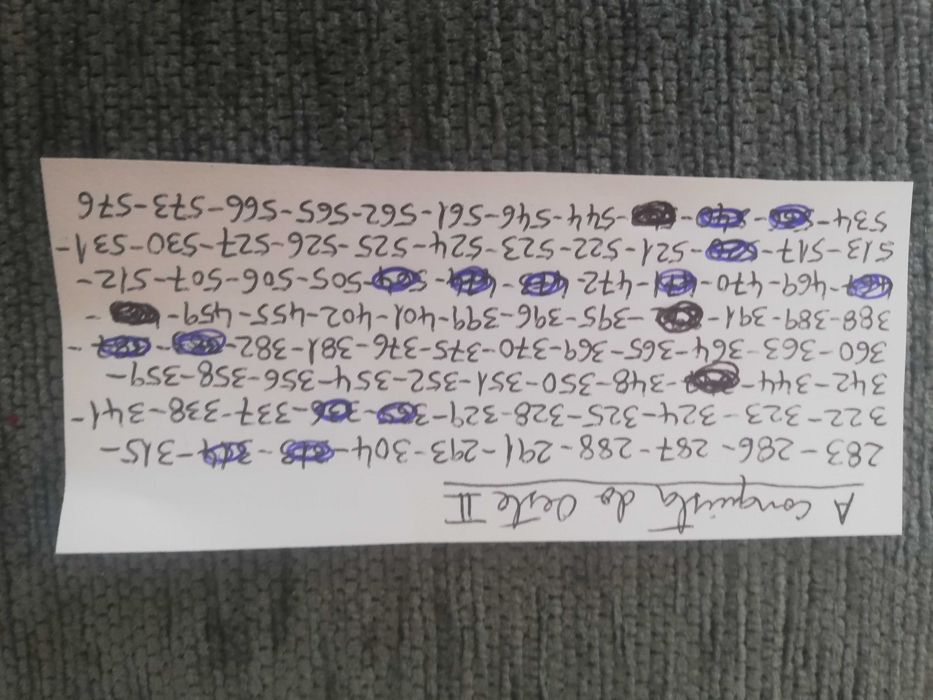 A conquista do Oeste II
283 - 286 - 287 - 288 - 291 - 293 - 304 - - - 315 -
322 - 323 - 324 - 325 - 328 - 329 - - - 337 - 338 - 341 -
342 - 344 - - 348 - 350 - 351 - 352 - 354 - 356 - 358 - 359 -
360 - 363 - 364 - 365 - 369 - 370 - 375 - 376 - 381 - 382 - - -
388 - 389 - 391 - - 395 - 396 - 399 - 401 - 402 - 455 - 459 - -
- 469 - 470 - - 472 - - - - 505 - 506 - 507 - 512 -
513 - 517 - - 521 - 522 - 523 - 524 - 525 - 526 - 527 - 530 - 531 -
534 - - - - 544 - 546 - 561 - 562 - 565 - 566 - 573 - 576